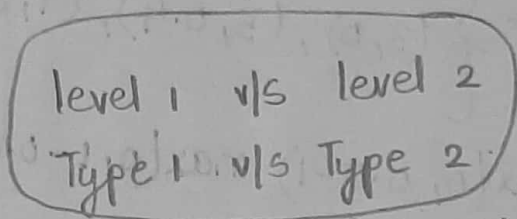 level 1 v/s level 2
Type 1 v/s Type 2